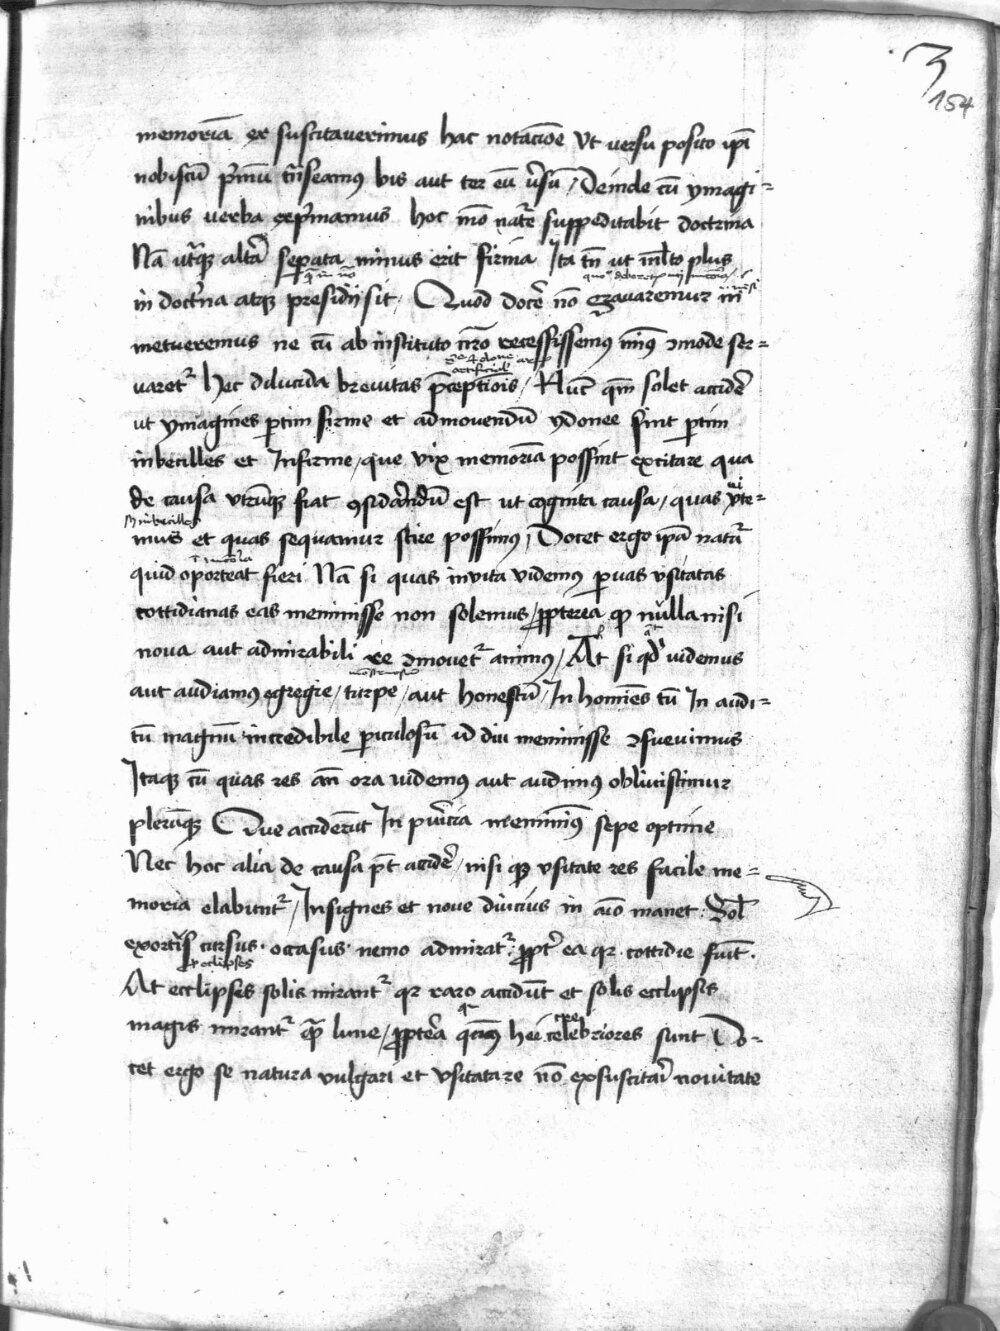 3
154
memoriā ex suscitaverimus hac notacōe Ut versu posito ipī
nobiscū pͥmū trāseamꝰ bis aut ter eū vͥsū / Deinde cū ymagi=
nibus verba expͥmamus hoc mō natͣe suppeditabit doctrina
Nā utͣqꝫ altͣa sepata minus erit firma Ita tn̄ ut ml̄to plus
in doctͥna atqꝫ presidij sit / Quod docēr nō gravaremur nī
metueremus ne cū ab instituto nr̄o recessissemꝰ minꝰ ɔmode ser=
varetͬ hec dilucida brevitas p̄ceptiois / Nūc qm̄ solet accidēr
ut ymagines ꝑtim firme et admovendū ydonee sint ꝑtim
inbecilles et Infirme / que vix memoriā possint excitare qua
de causa utrūqꝫ fiat ꝯsidͣandū est ut cognita causa / quas vite=
mus et quas sequamur scire possimꝰ / Docet ergo ipā natͣa
quid oporteat fieri Nā si quas in vita videmꝰ ꝑvas usitatas
cottidianas eas meminisse non solemus / ꝓpterea qꝫ nulla nisi
nova aut admirabili re ɔmovetͬ animꝰ / At si qͥd videmus
aut audiamꝰ egregie / turpe / aut honestū / In homies tū In audi=
tū magnū incredibile ꝑiculosū id diu meminisse ɔsuevimus
Itaqꝫ cū quas res an̄ ora videmꝰ aut audimꝰ obliviscimur
plerūqꝫ Que acciderūt In pueͥcia meminimꝰ sepe optime
Nec hoc alia de causa pͭt accidēr / nisi qꝫ usitate res facile me=
moria elabuntͬ / Insignes et nove diucius in aīo manet: Sol̄
exortꝰ cursus · occasus · nemo admiratͬ: ꝓptͤ ea qꝛ cottidie fiūt ·
eclipses
At ecclipses solis mirantͬ qꝛ raro accidūt et solis ecclipsis
magis mirantͬ qͣm lune / ꝓpterea qm̄ hec celebriores sunt Do=
cet ergo se natura vulgari et usitata re nō exsuscitari novitate